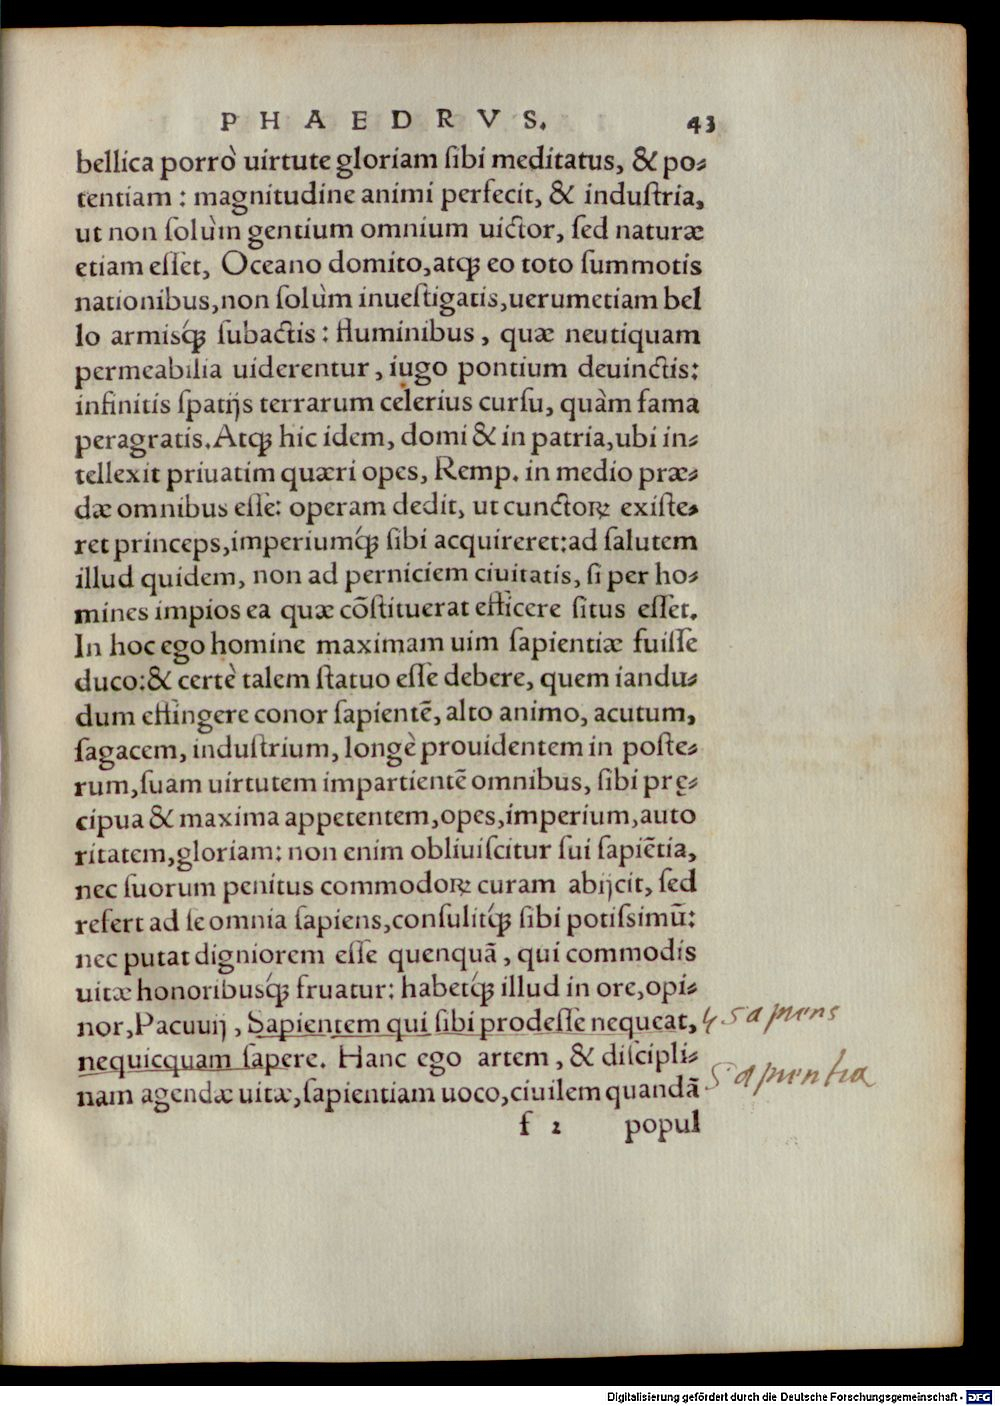 PHAEDRVS. 43
bellica porrò uirtute gloriam ſibi meditatus, & po⸗
tentiam: magnitudine animi perfecit, & induſtria,
ut non ſolùm gentium omnium uictor, ſed naturæ
etiam eſſet, Oceano domito, atqꝫ eo toto ſummotis
nationibus, non ſolùm inueſtigatis, uerumetiam bel
lo armisq́ꝫ ſubactis: fluminibus, quæ neutiquam
permeabilia uiderentur, iugo pontium deuinctis:
infinitis ſpatijs terrarum celerius curſu, quàm fama
peragratis. Atqꝫ hic idem, domi & in patria, ubi in⸗
tellexit priuatim quæri opes, Remp. in medio præ⸗
dæ omnibus eſſe: operam dedit, ut cunctoꝝ exiſte⸗
ret princeps, imperiumq́ꝫ ſibi acquireret: ad ſalutem
illud quidem, non ad perniciem ciuitatis, ſi per ho⸗
mines impios ea quæ cōſtituerat efficere ſitus eſſet.
In hoc ego homine maximam uim ſapientiæ fuiſſe
duco: & certè talem ſtatuo eſſe debere, quem iandu⸗
dum effingere conor ſapientē, alto animo, acutum,
ſagacem, induſtrium, longè prouidentem in poſte⸗
rum, ſuam uirtutem impartientē omnibus, ſibi prę⸗
cipua & maxima appetentem, opes, imperium, auto
ritatem, gloriam: non enim obliuiſcitur ſui ſapiētia,
nec ſuorum penitus commodoꝝ curam abijcit, ſed
refert ad ſe omnia ſapiens, conſulitq́ꝫ ſibi potiſsimū:
nec putat digniorem eſſe quenquā, qui commodis
uitæ honoribusq́ꝫ fruatur: habetq́ꝫ illud in ore, opi⸗
nor, Pacuuij, Sapientem qui ſibi prodeſſe nequeat, Sapiens
nequicquam ſapere. Hanc ego artem, & diſcipli⸗
nam agendæ uitæ, ſapientiam uoco, ciuilem quandā Sapientia
f 2 popul
Digitalisierung gefördert durch die Deutsche Forschungsgemeinschaft - DFG